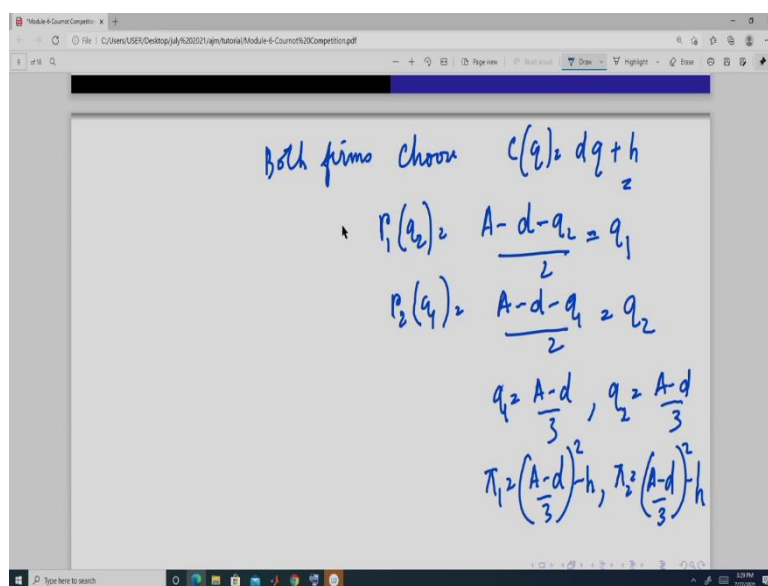 *Module-6-Cournot Competitio
File | C:/Users/USER/Desktop/july%202021/ajm/tutorial/Module-6-Cournot%20Competition.pdf
of 18
Page view
Read aloud
Draw
Highlight
Erase
Both firms choose C(q) = dq + h
r₁(q₂) = (A - d - q₂)/2 = q₁
r₂(q₁) = (A - d - q₁)/2 = q₂
q₁ = (A-d)/3 , q₂ = (A-d)/3
π₁ = ((A-d)/3)² - h, π₂ = ((A-d)/3)² - h
Type here to search
3:29 PM